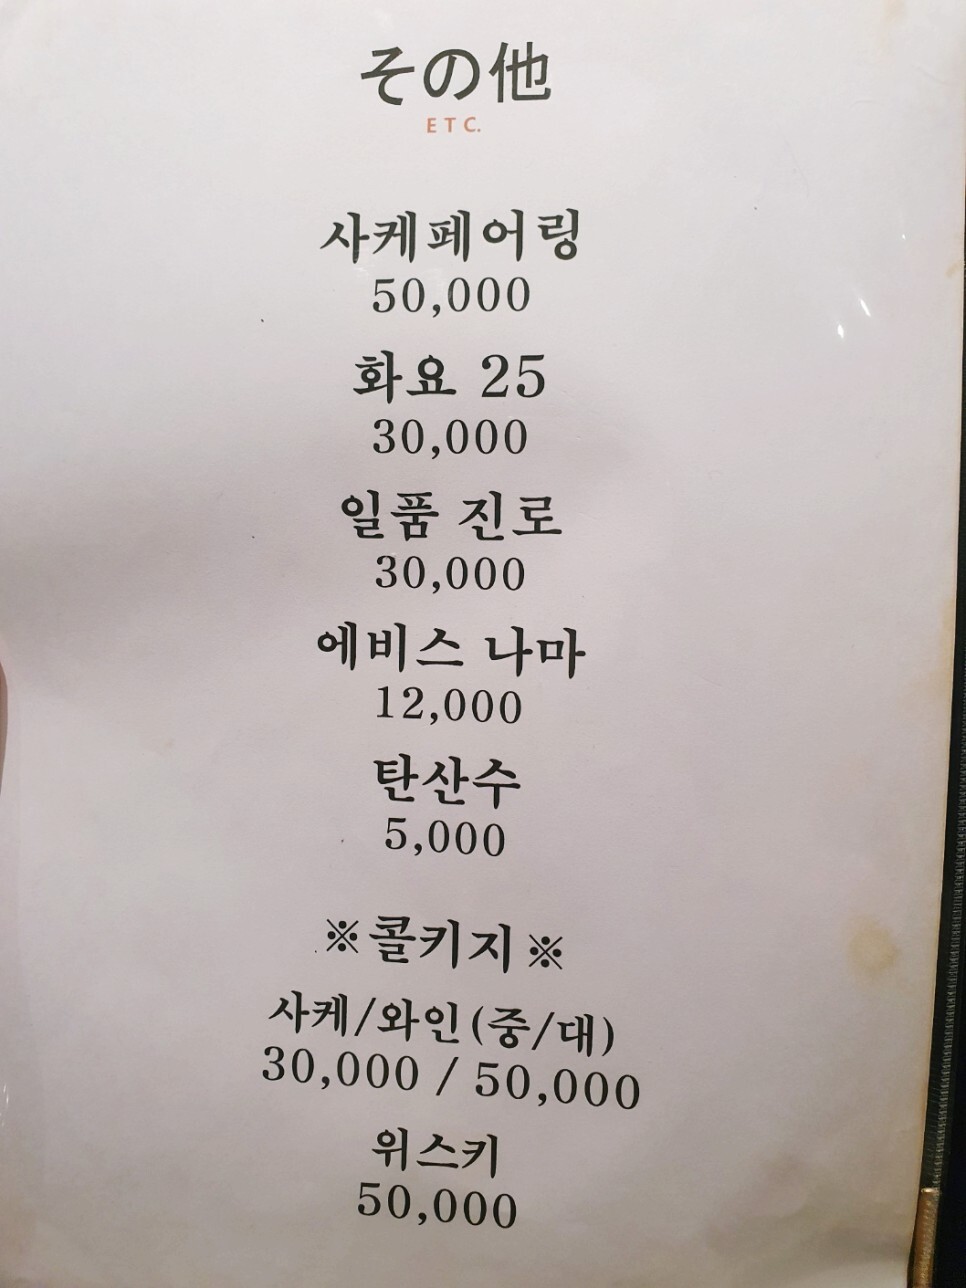 その他
ETC.
사케페어링
50,000
화요 25
30,000
일품 진로
30,000
에비스 나마
12,000
탄산수
5,000
※콜키지※
사케/와인(중/대)
30,000 / 50,000
위스키
50,000